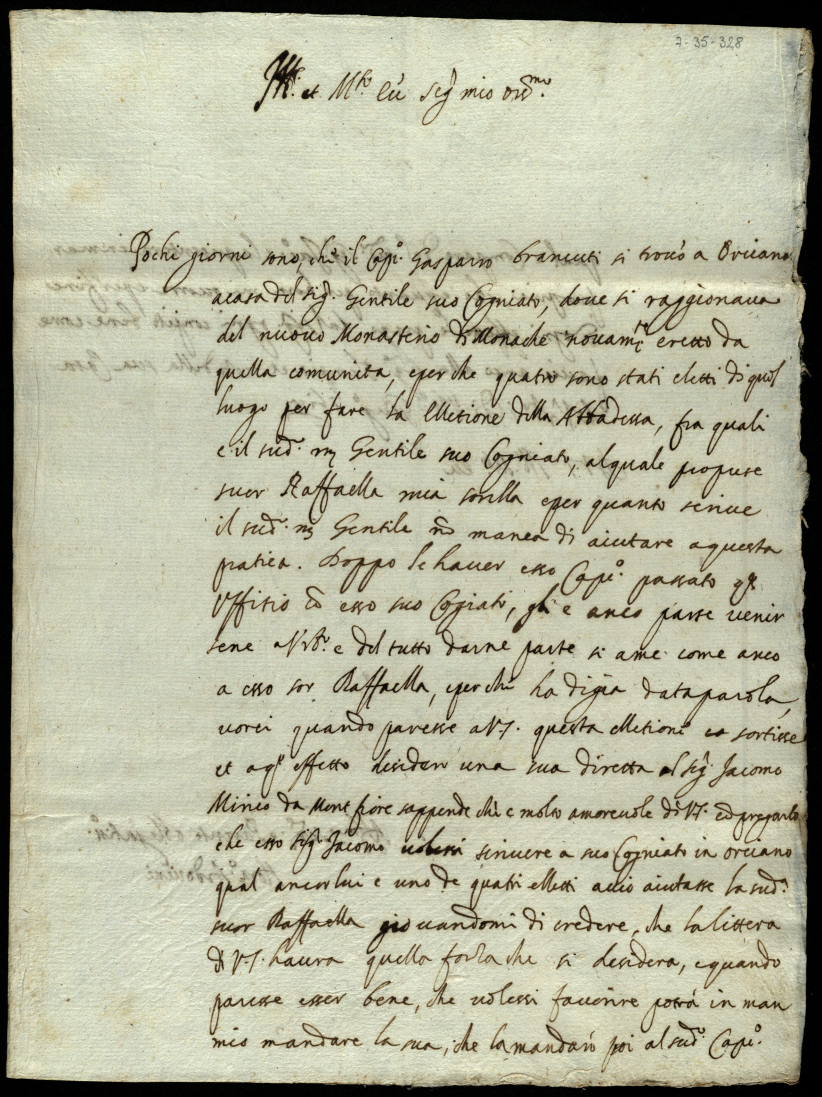 7-35-328
Ill.re et M.to Ecc. Sig. mio oss.mo
Pochi giorni sono, che il Cap.o Gasparro Brancuti si trovò a Orciano
a casa del sig. Gentile suo Cogniato, dove si raggionava
del nuovo Monasterio di Monache novam.te eretto da
quella comunita, e perche quatro sono stati eletti di quel
luogo per fare la Eletione della Abbadessa, fra quali
e il sud.o Gentile suo Cogniato, al quale propuse
suor Raffaella mia sorella e per quanto scrive
il sud.o Gentile nõ manca di aiutare a questa
pratica. Doppo le haver esso Cap.o passato
Uffitio cõ esso suo Cogniato, gli e anco parse venir
sene a Urb.o e del tutto darne parte si a me come anco
a esso sor Raffaella, e perche ha digia data parola,
vorei quando paresse a V.S. questa elletione sortisse
et a q.to effetto desidero una sua diretta al sig. Jacomo
da Montfiore sappende che e molto amorevole di V.S. ed pregarlo
che esso sig. Jacomo volessi scrivere a suo Cogniato in orciano
qual ancor lui e uno de quatri elletti accio aiutasse la sud.a
suor Raffaella giovandomi di credere, che la littera
di V.S. havra quella forza che si desidera, e quando
paresse esser bene, che volessi favorire potrà in man
mio mandare la sua, che la mandarò poi al sud.o Cap.o